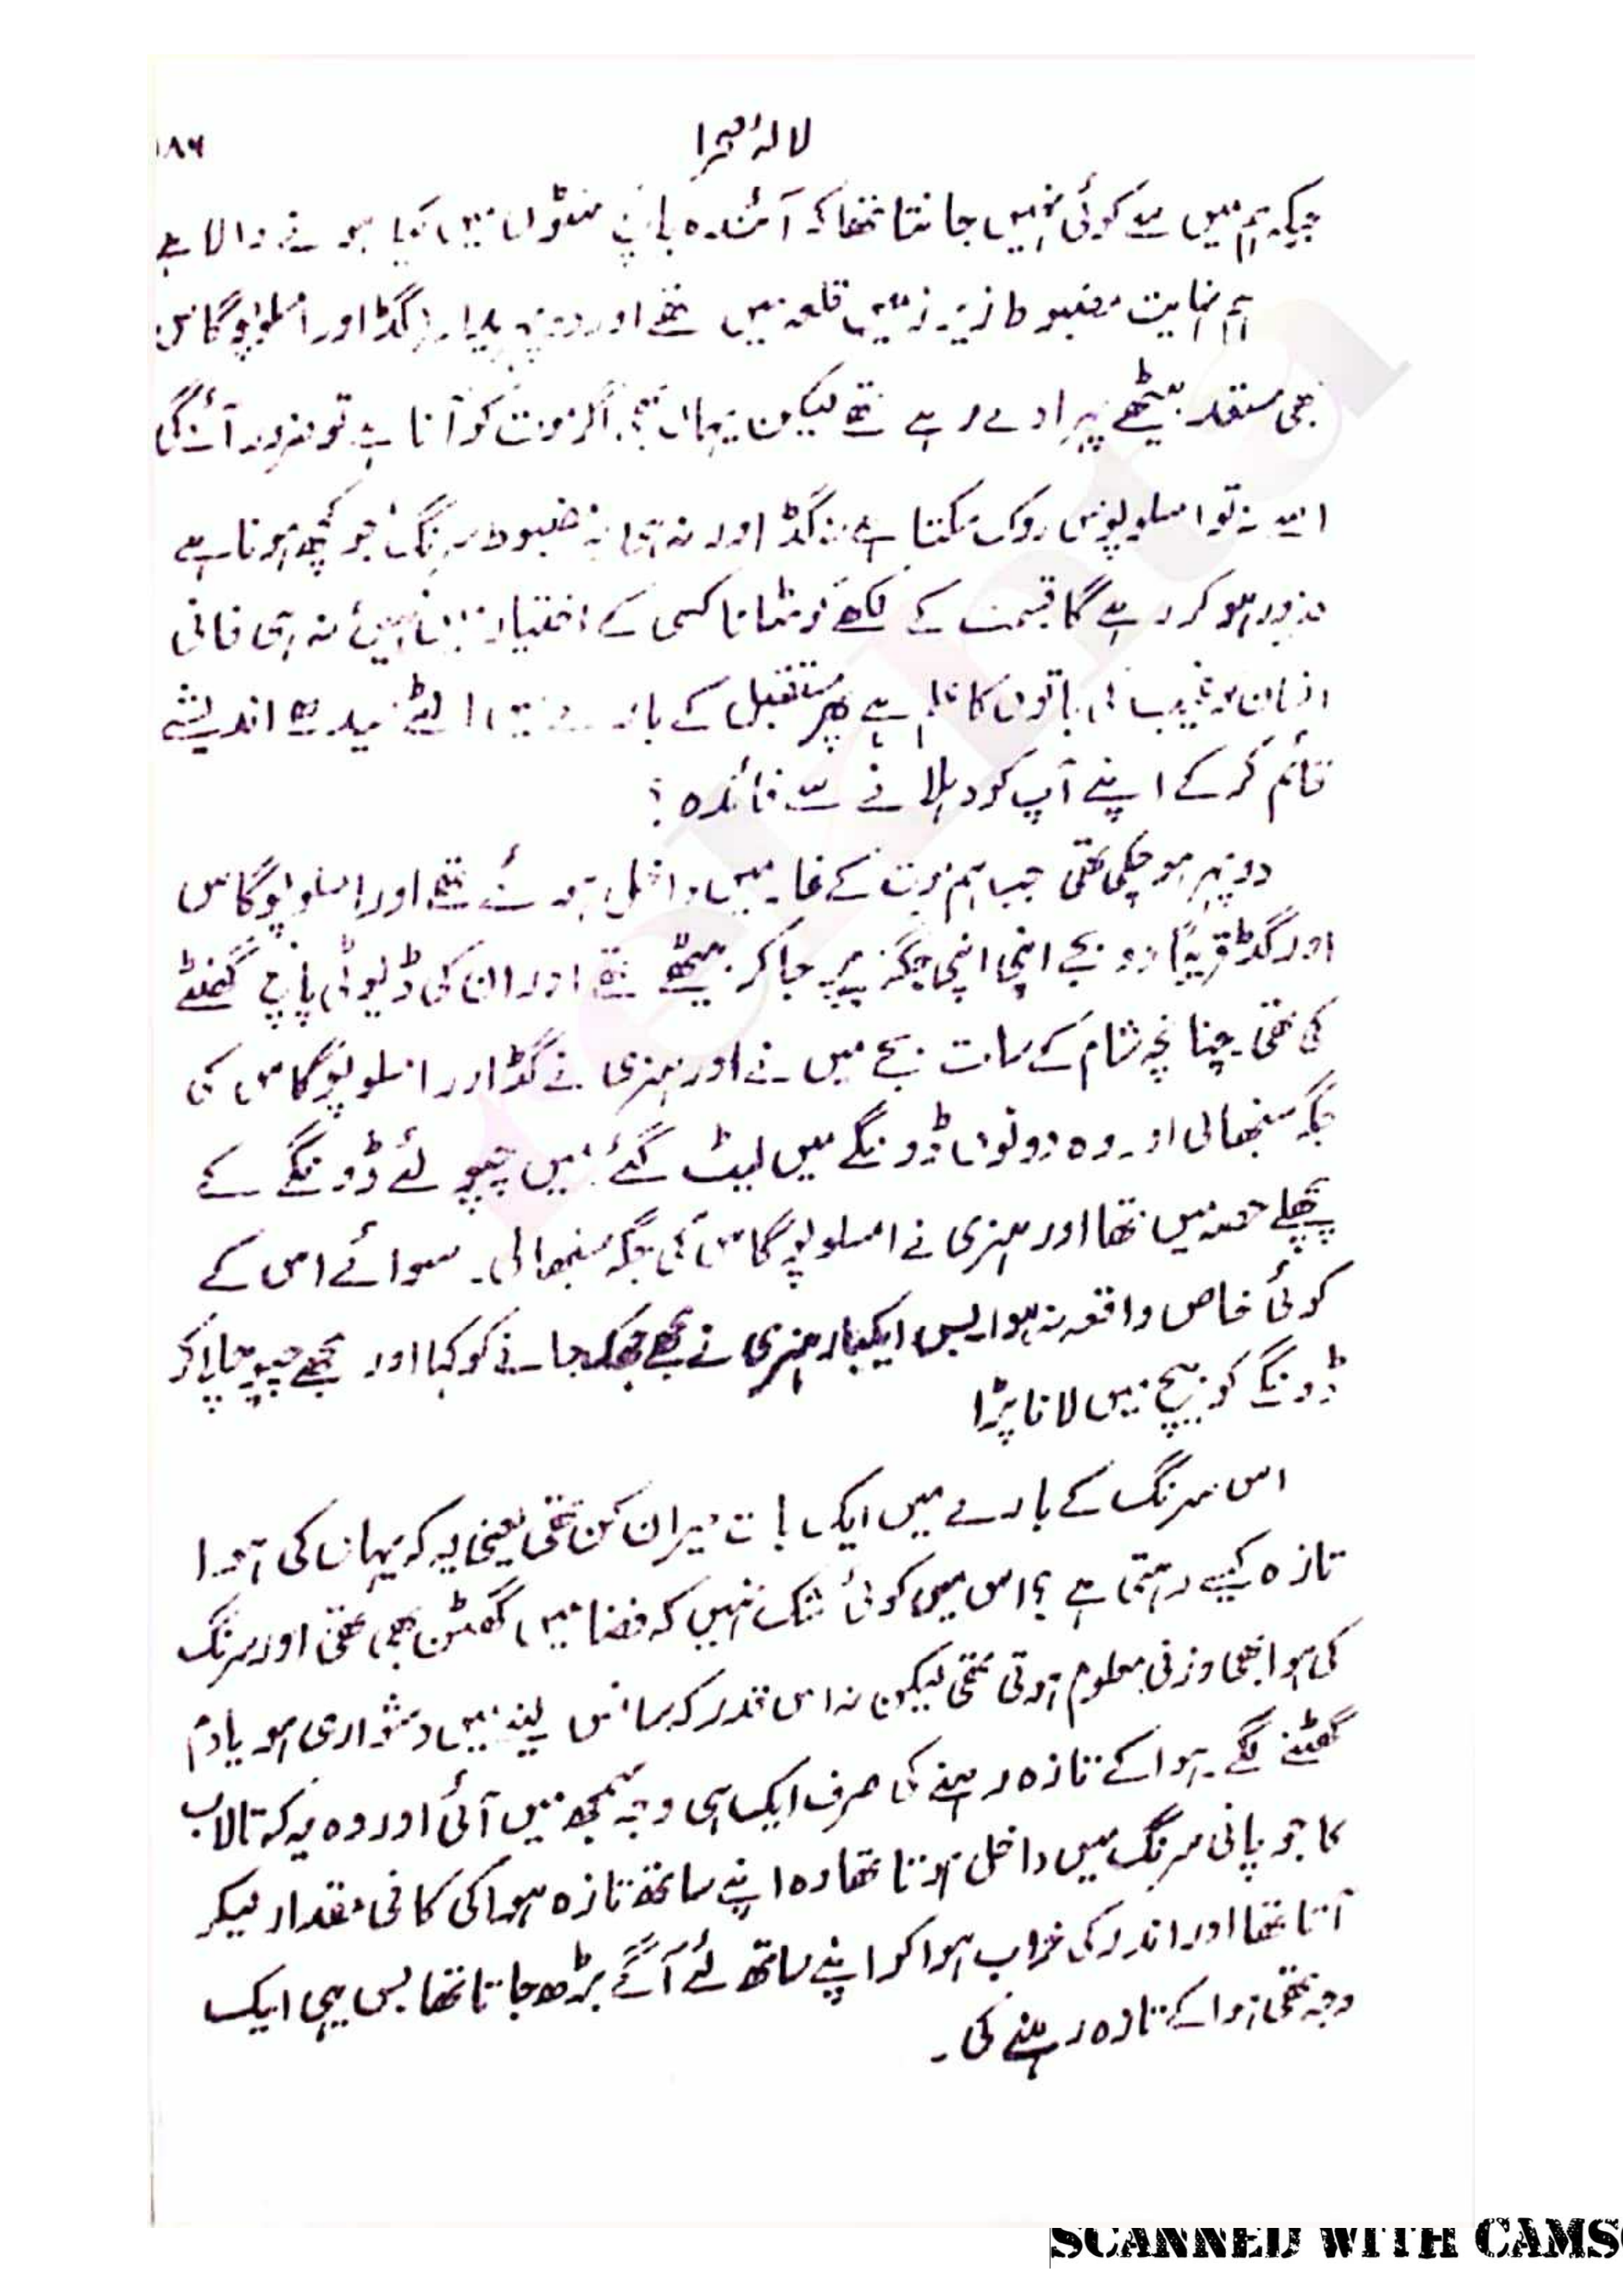 لالۂ صحرا
۱۸۶
جبکہ ہم میں سے کوئی نہیں جانتا تھا کہ آئندہ پانچ منٹوں میں کیا ہونے والا ہے
ہم نہایت مضبوط زیر زمین قلعہ میں تھے اور دو پہریدار، گڈ اور املوپوگاس
بھی مستعد بیٹھے پہرا دے رہے تھے لیکن یہاں بھی اگر موت کو آنا ہے تو ضرور آئے گی
اسے نہ تو املوپوگس روک سکتا ہے نہ گڈ اور نہ ہی یہ مضبوط سرنگ جو کچھ ہونا ہے
ضرور ہو کر رہے گا قسمت کے لکھے کو مٹانا کسی کے اختیار میں نہیں نہ ہی فانی
انسان کو غیب کی باتوں کا علم ہے پھر مستقبل کے بارے میں الٹے سیدھے اندیشے
قائم کر کے اپنے آپ کو دہلانے سے فائدہ؟
دوپہر ہو چکی تھی جب ہم موت کے غار میں داخل ہوئے تھے اور املوپوگاس
اور گڈ قریباً دو بجے اپنی اپنی جگہ پر جا کر بیٹھے تھے اور ان کی ڈیوٹی پانچ گھنٹے
کی تھی۔ چنانچہ شام کے سات بجے میں نے اور ہنری نے گڈ اور املوپوگاس کی
جگہ سنبھالی اور وہ دونوں ڈونگے میں لیٹ گئے۔ میں چپو لئے ڈونگے کے
پچھلے حصہ میں تھا اور ہنری نے املوپوگاس کی جگہ سنبھالی۔ سوائے اس کے
کوئی خاص واقعہ نہ ہوا بس ایکبار ہنری نے مجھے جھک جانے کو کہا اور مجھے چپو چلا کر
ڈونگے کو بیچ میں لانا پڑا
اس سرنگ کے بارے میں ایک بات حیران کن تھی یعنی یہ کہ یہاں کی ہوا
تازہ کیسے رہتی ہے؟ اس میں کوئی شک نہیں کہ فضا میں گھٹن بھی تھی اور سرنگ
کی ہوا بھی وزنی معلوم ہوتی تھی لیکن نہ اس قدر کہ سانس لینے میں دشواری ہو یا دم
گھٹنے لگے۔ ہوا کے تازہ رہنے کی صرف ایک ہی وجہ سمجھ میں آئی اور وہ یہ کہ تالاب
کا جو پانی سرنگ میں داخل ہوتا تھا وہ اپنے ساتھ تازہ ہوا کی کافی مقدار لیکر
آتا تھا اور اندر کی خراب ہوا کو اپنے ساتھ لئے آگے بڑھ جاتا تھا بس یہی ایک
وجہ تھی ہوا کے تازہ رہنے کی۔
rekhta
SCANNED WITH CAMS